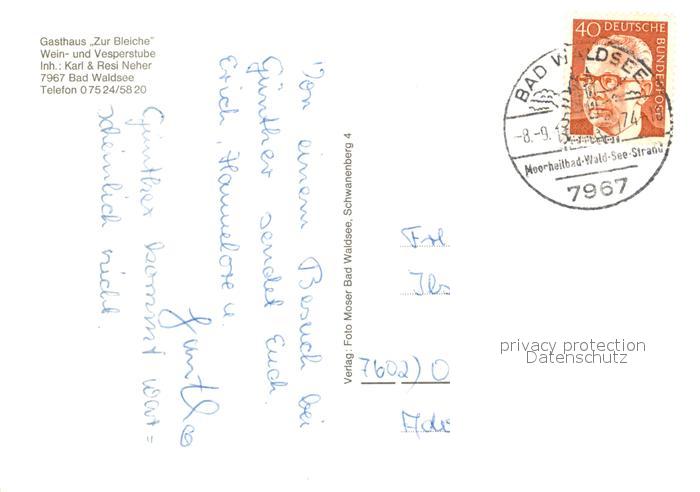 Gasthaus „Zur Bleiche"
Wein- und Vesperstube
Inh.: Karl & Resi Neher
7967 Bad Waldsee
Telefon 0 75 24/58 20
Von einem Besuch bei
Günther sendet Euch
Erich, Hannelore u.
Günther
Günther kommt war=
scheinlich nicht.
Verlag: Foto Moser Bad Waldsee, Schwanenberg 4
40 DEUTSCHE BUNDESPOST
BAD WALDSEE
-8.-9.
74-18
Moorheilbad-Wald-See-Strand
7967
7602) O
privacy protection
Datenschutz